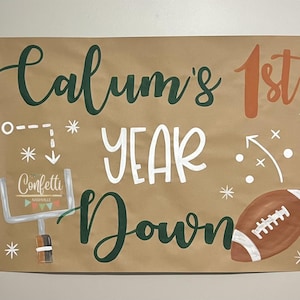 Calum's 1st
YEAR
Confetti
Down